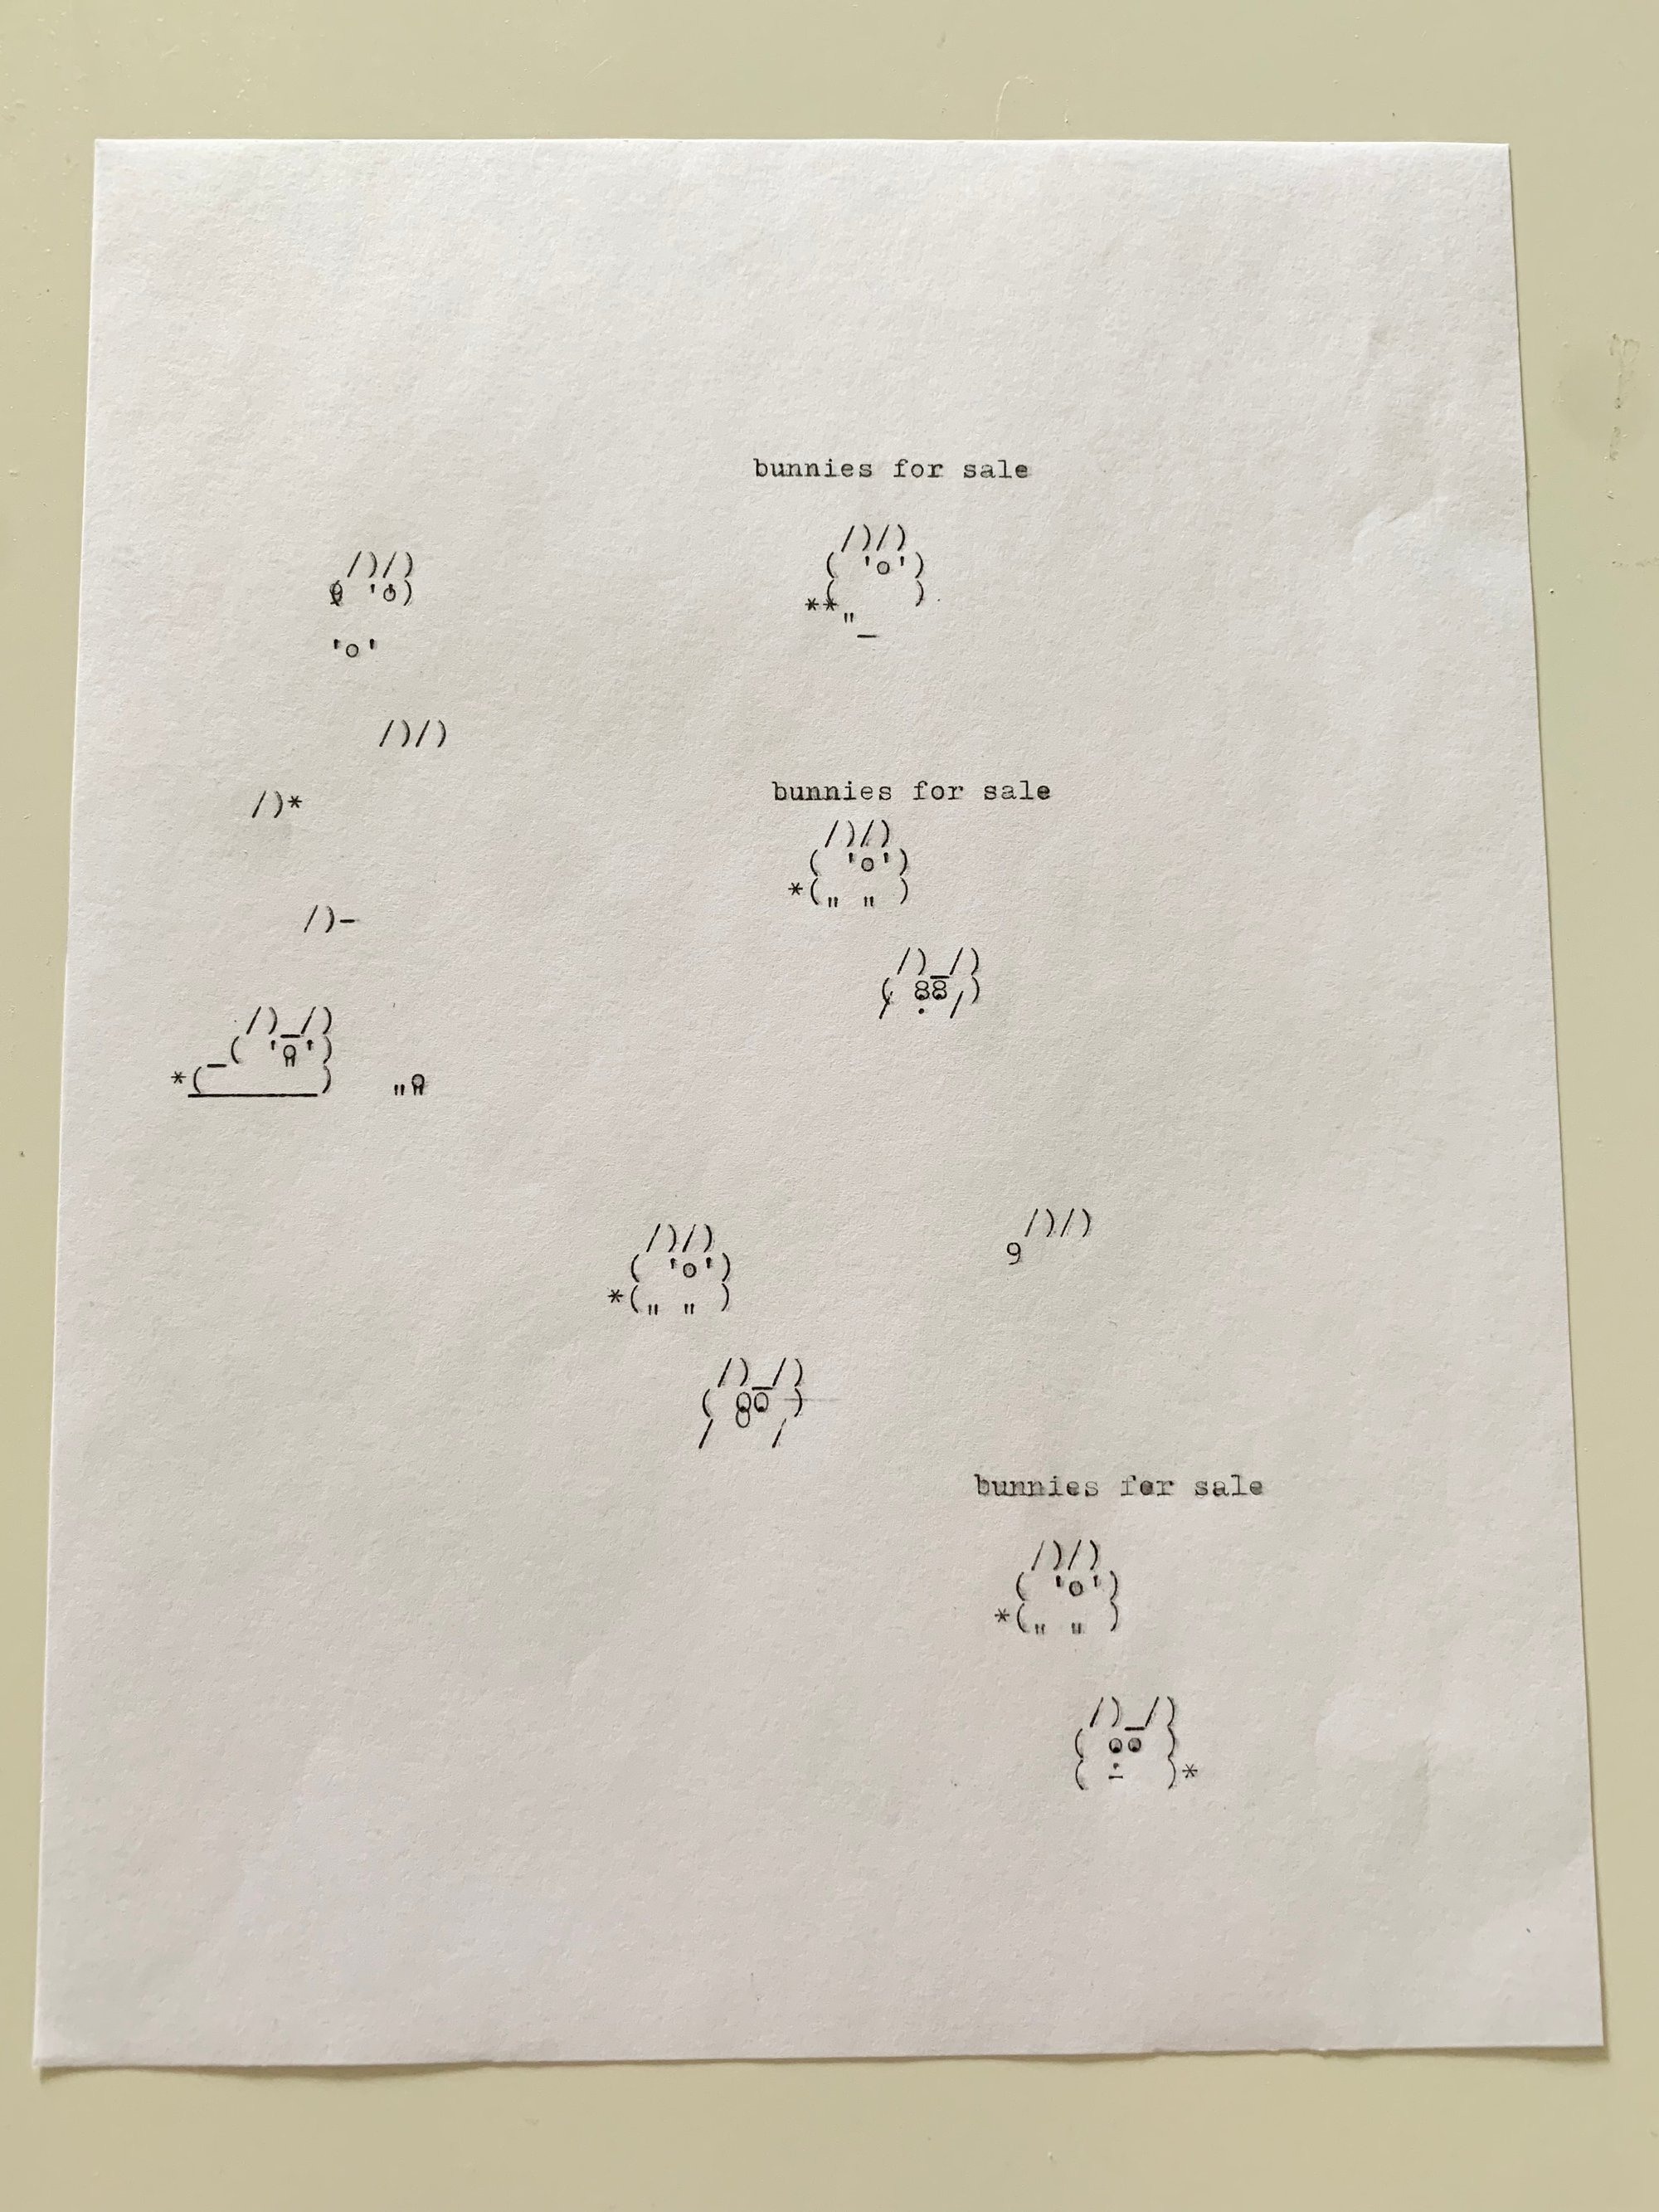 bunnies for sale
/)/)
( 'o')
( )
**"_
/)/)
'o)
'o'
/)/)
/)*
/)-
bunnies for sale
/)/)
( 'o')
*(" " )
/)_/)
( 88 )
/ . /
/)_/)
_( ' ')
*(_______)
"
/)/)
( 'o')
*(" " )
/)/)
9
/)_/)
( )
/ /
bunnies for sale
/)/)
( 'o')
*(" " )
/)_/)
( oo )
( )*